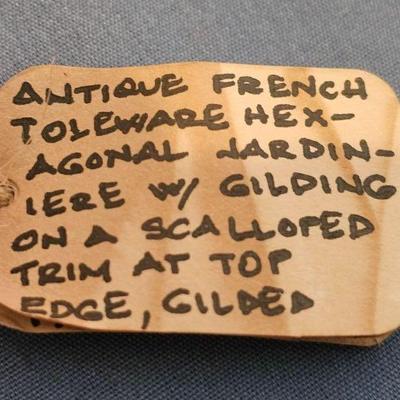 ANTIQUE FRENCH
TOLEWARE HEX-
AGONAL JARDIN-
IERE W/ GILDING
ON A SCALLOPED
TRIM AT TOP
EDGE, GILDED